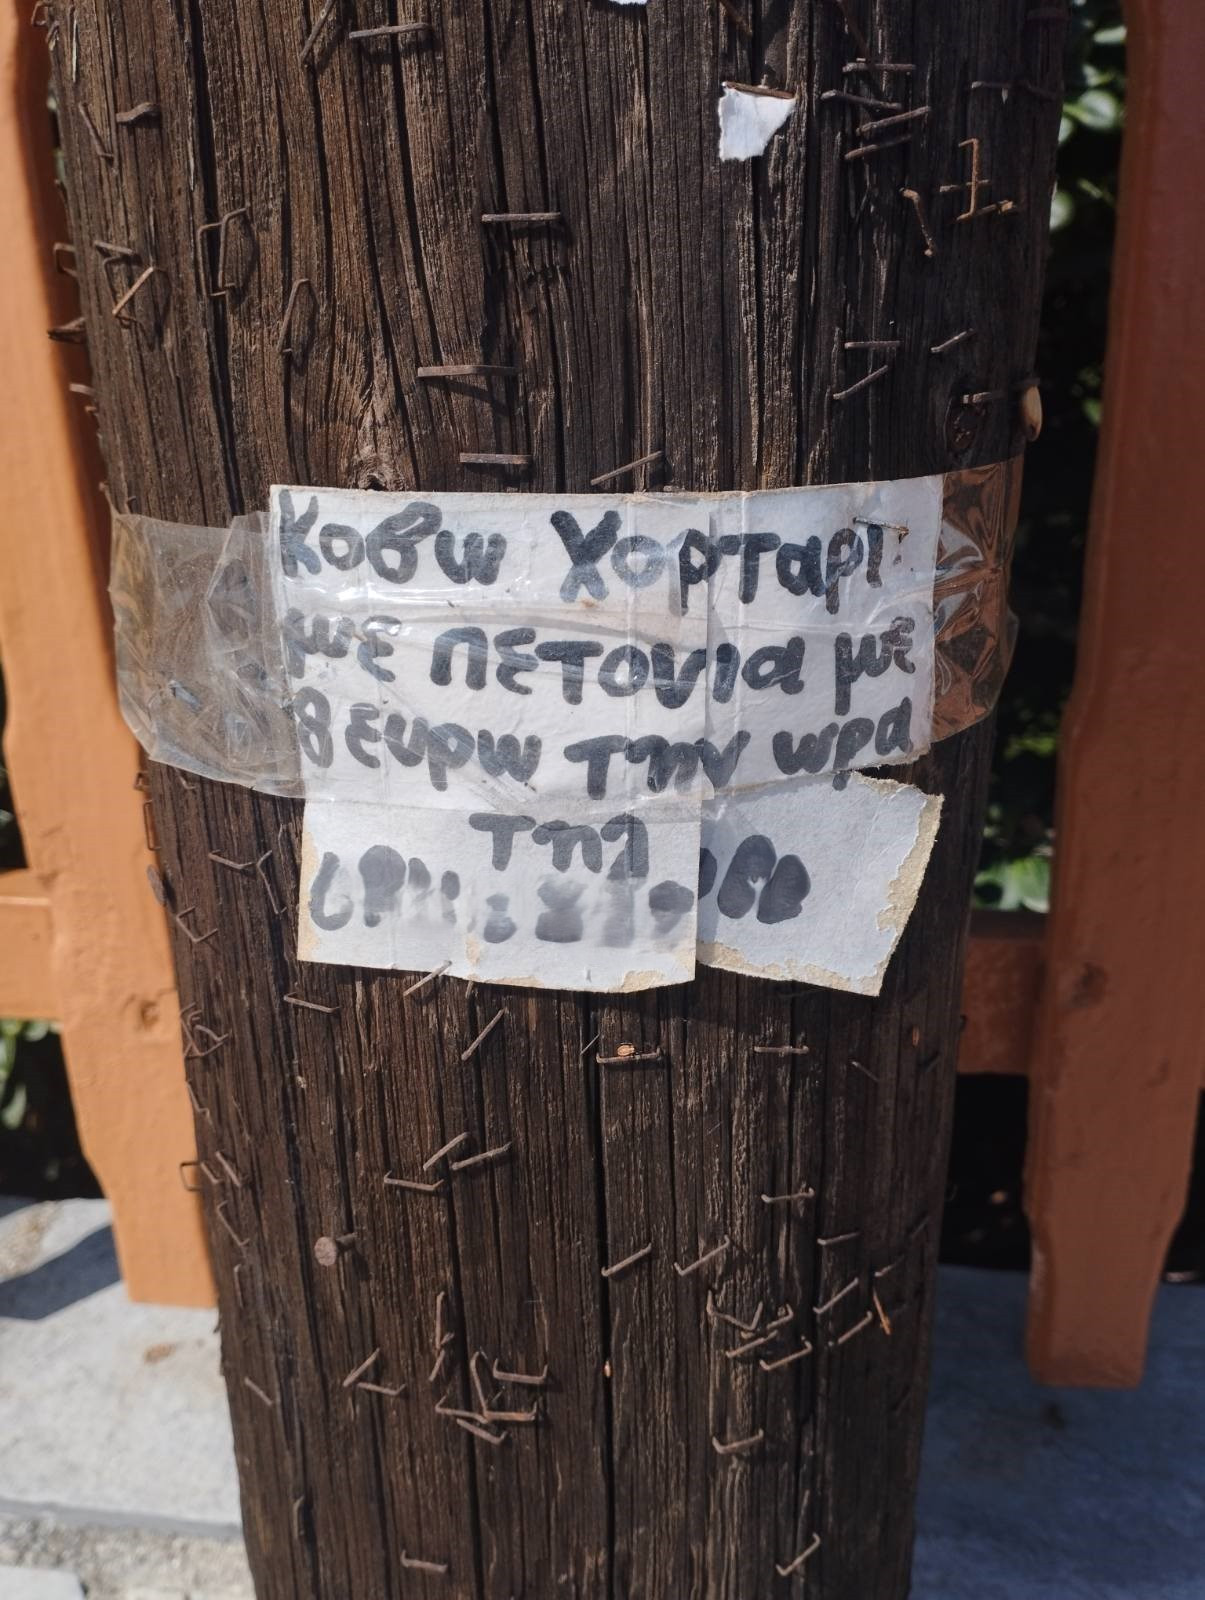 κοβω χορταρι
με πετονια με
8 ευρω την ωρα
τηλ